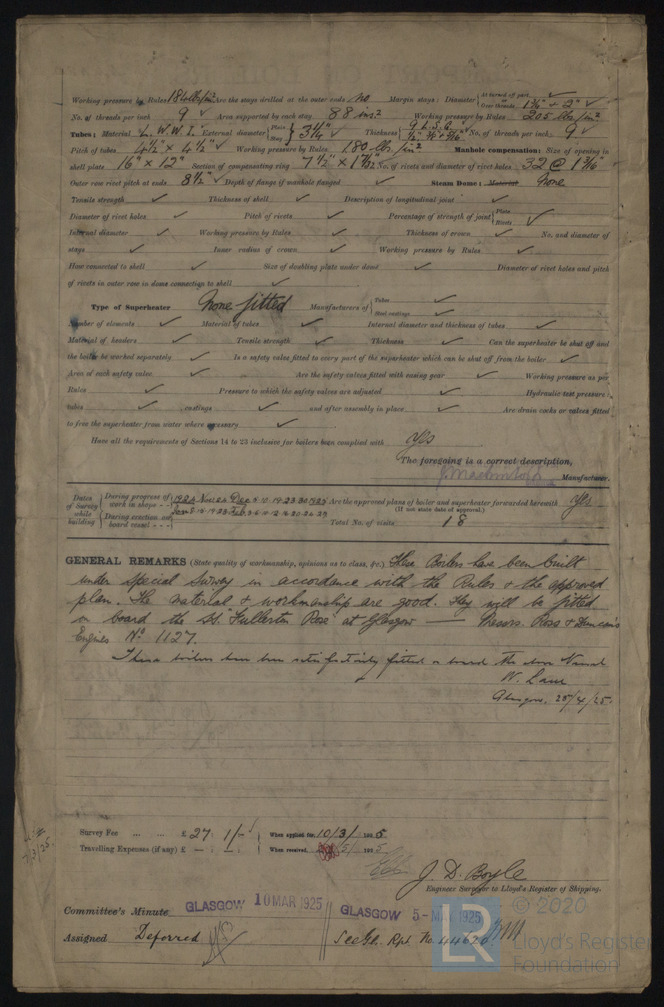 Working pressure by Rules 184 lbs/in² Are the stays drilled at the outer ends No Margin stays: Diameter { At turned off part, ✓ Over threads 1⅞" + 2" ✓
No. of threads per inch 9 ✓ Area supported by each stay 88 ins.² Working pressure by Rules 205 lbs/in²
Tubes: Material L.W.W.I. External diameter { Plain Stay } 3¼" ✓ Thickness { 9 L.S.G. No. of threads per inch 9 ✓
Pitch of tubes 4½" x 4½" ✓ Working pressure by Rules 180 lbs/in² Manhole compensation: Size of opening in
shell plate 16" x 12" Section of compensating ring 7½" x 1⁷⁄₃₂" No. of rivets and diameter of rivet holes 32 @ 1³⁄₁₆" ✓
Outer row rivet pitch at ends 8½" ✓ Depth of flange if manhole flanged ✓ Steam Dome: Material None
Tensile strength ✓ Thickness of shell ✓ Description of longitudinal joint ✓
Diameter of rivet holes ✓ Pitch of rivets ✓ Percentage of strength of joint { Plate Rivets ✓
Internal diameter ✓ Working pressure by Rules ✓ Thickness of crown ✓ No. and diameter of
stays ✓ Inner radius of crown ✓ Working pressure by Rules ✓
How connected to shell ✓ Size of doubling plate under dome ✓ Diameter of rivet holes and pitch
of rivets in outer row in dome connection to shell ✓
Type of Superheater None fitted Manufacturers of { Tubes ✓ Steel castings ✓
Number of elements ✓ Material of tubes ✓ Internal diameter and thickness of tubes ✓
Material of headers ✓ Tensile strength ✓ Thickness ✓ Can the superheater be shut off and
the boiler be worked separately ✓ Is a safety valve fitted to every part of the superheater which can be shut off from the boiler ✓
Area of each safety valve ✓ Are the safety valves fitted with easing gear ✓ Working pressure as per
Rules ✓ Pressure to which the safety valves are adjusted ✓ Hydraulic test pressure:
tubes ✓ castings ✓ and after assembly in place ✓ Are drain cocks or valves fitted
to free the superheater from water where necessary ✓
Have all the requirements of Sections 14 to 23 inclusive for boilers been complied with Yes
The foregoing is a correct description,
J. Mackintosh Manufacturer.
Dates of Survey while building { During progress of work in shops - - 1924 Nov 20 Dec 1925 Are the approved plans of boiler and superheater forwarded herewith Yes
(If not state date of approval.)
During erection on board vessel - - - Total No. of visits 18
GENERAL REMARKS (State quality of workmanship, opinions as to class, &c.) These Boilers have been built
under special survey in accordance with the Rules & the approved
plan. The material & workmanship are good. They will be fitted
on board the SS. "Fullerton Rose" at Glasgow — Messrs. Ross & Duncan's
Engines No. 1127.
These boilers have been satisfactorily fitted on board the above Named
Glasgow. 25/4/25.
Survey Fee ... ... £ 27 : 1/- : When applied for, 10/3/1925
Travelling Expenses (if any) £ - : - : When received, /5/1925
J. D. Boyle
Engineer Surveyor to Lloyd's Register of Shipping.
Committee's Minute GLASGOW 10 MAR 1925 GLASGOW 5-MAY 1925
Assigned Deferred See Gl. Rpt. No 44626
© 2020
LR
Lloyd's Register
Foundation
7/3/25